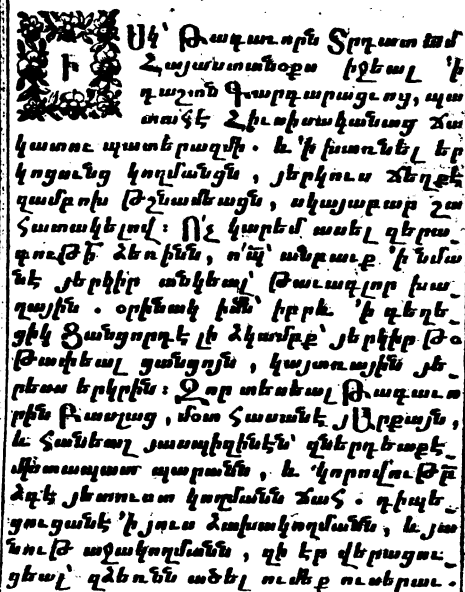 Ի Սկ՝ Թագաւորն Տրդատ ամ
Հայաստանօքս իջեալ ՚ի
դաշտն Գարդարացւոց, պա
տահէ Հիւսիսականաց ճա
կատու պատերազմի . և ՚ի խառնել եր
կոցունց կողմանցն , յերկուս ճեղքէ
զամբոխ թշնամեացն , սկայաբար շա
հատակելով ։ Ո՛չ կարեմ ասել զերա
գութի ձեռինն , ո՛պ՝ անբաւք ՚ի նմա
նէ յերկիր անկեալ՝ թաւագլոր խա
ղային . օրինակ իմն՝ իբրև ՚ի գեղե
ցիկ Ցանցորդէ լի ձկամբք՝ յերկիր թօ
թափեալ ցանցոյն , կայտռային յե
րեսս երկրին ։ Զոր տեսեալ Թագաւո
րին Բասլաց , մօտ հասանէ յԱրքայն ,
և հանեալ յասպազինէն՝ զներդեաքէ
պատ պարանն , և ՚կորովութբ
ձգէ յետուստ կողմանն ճահ . դիպե
ցուցանէ ՚ի յուս ձախակողմանն , և յա
նութ աջակողմանն , զի էր վերացու
ցեալ՝ զձեռնն ածել ումեք ուսերաւ .